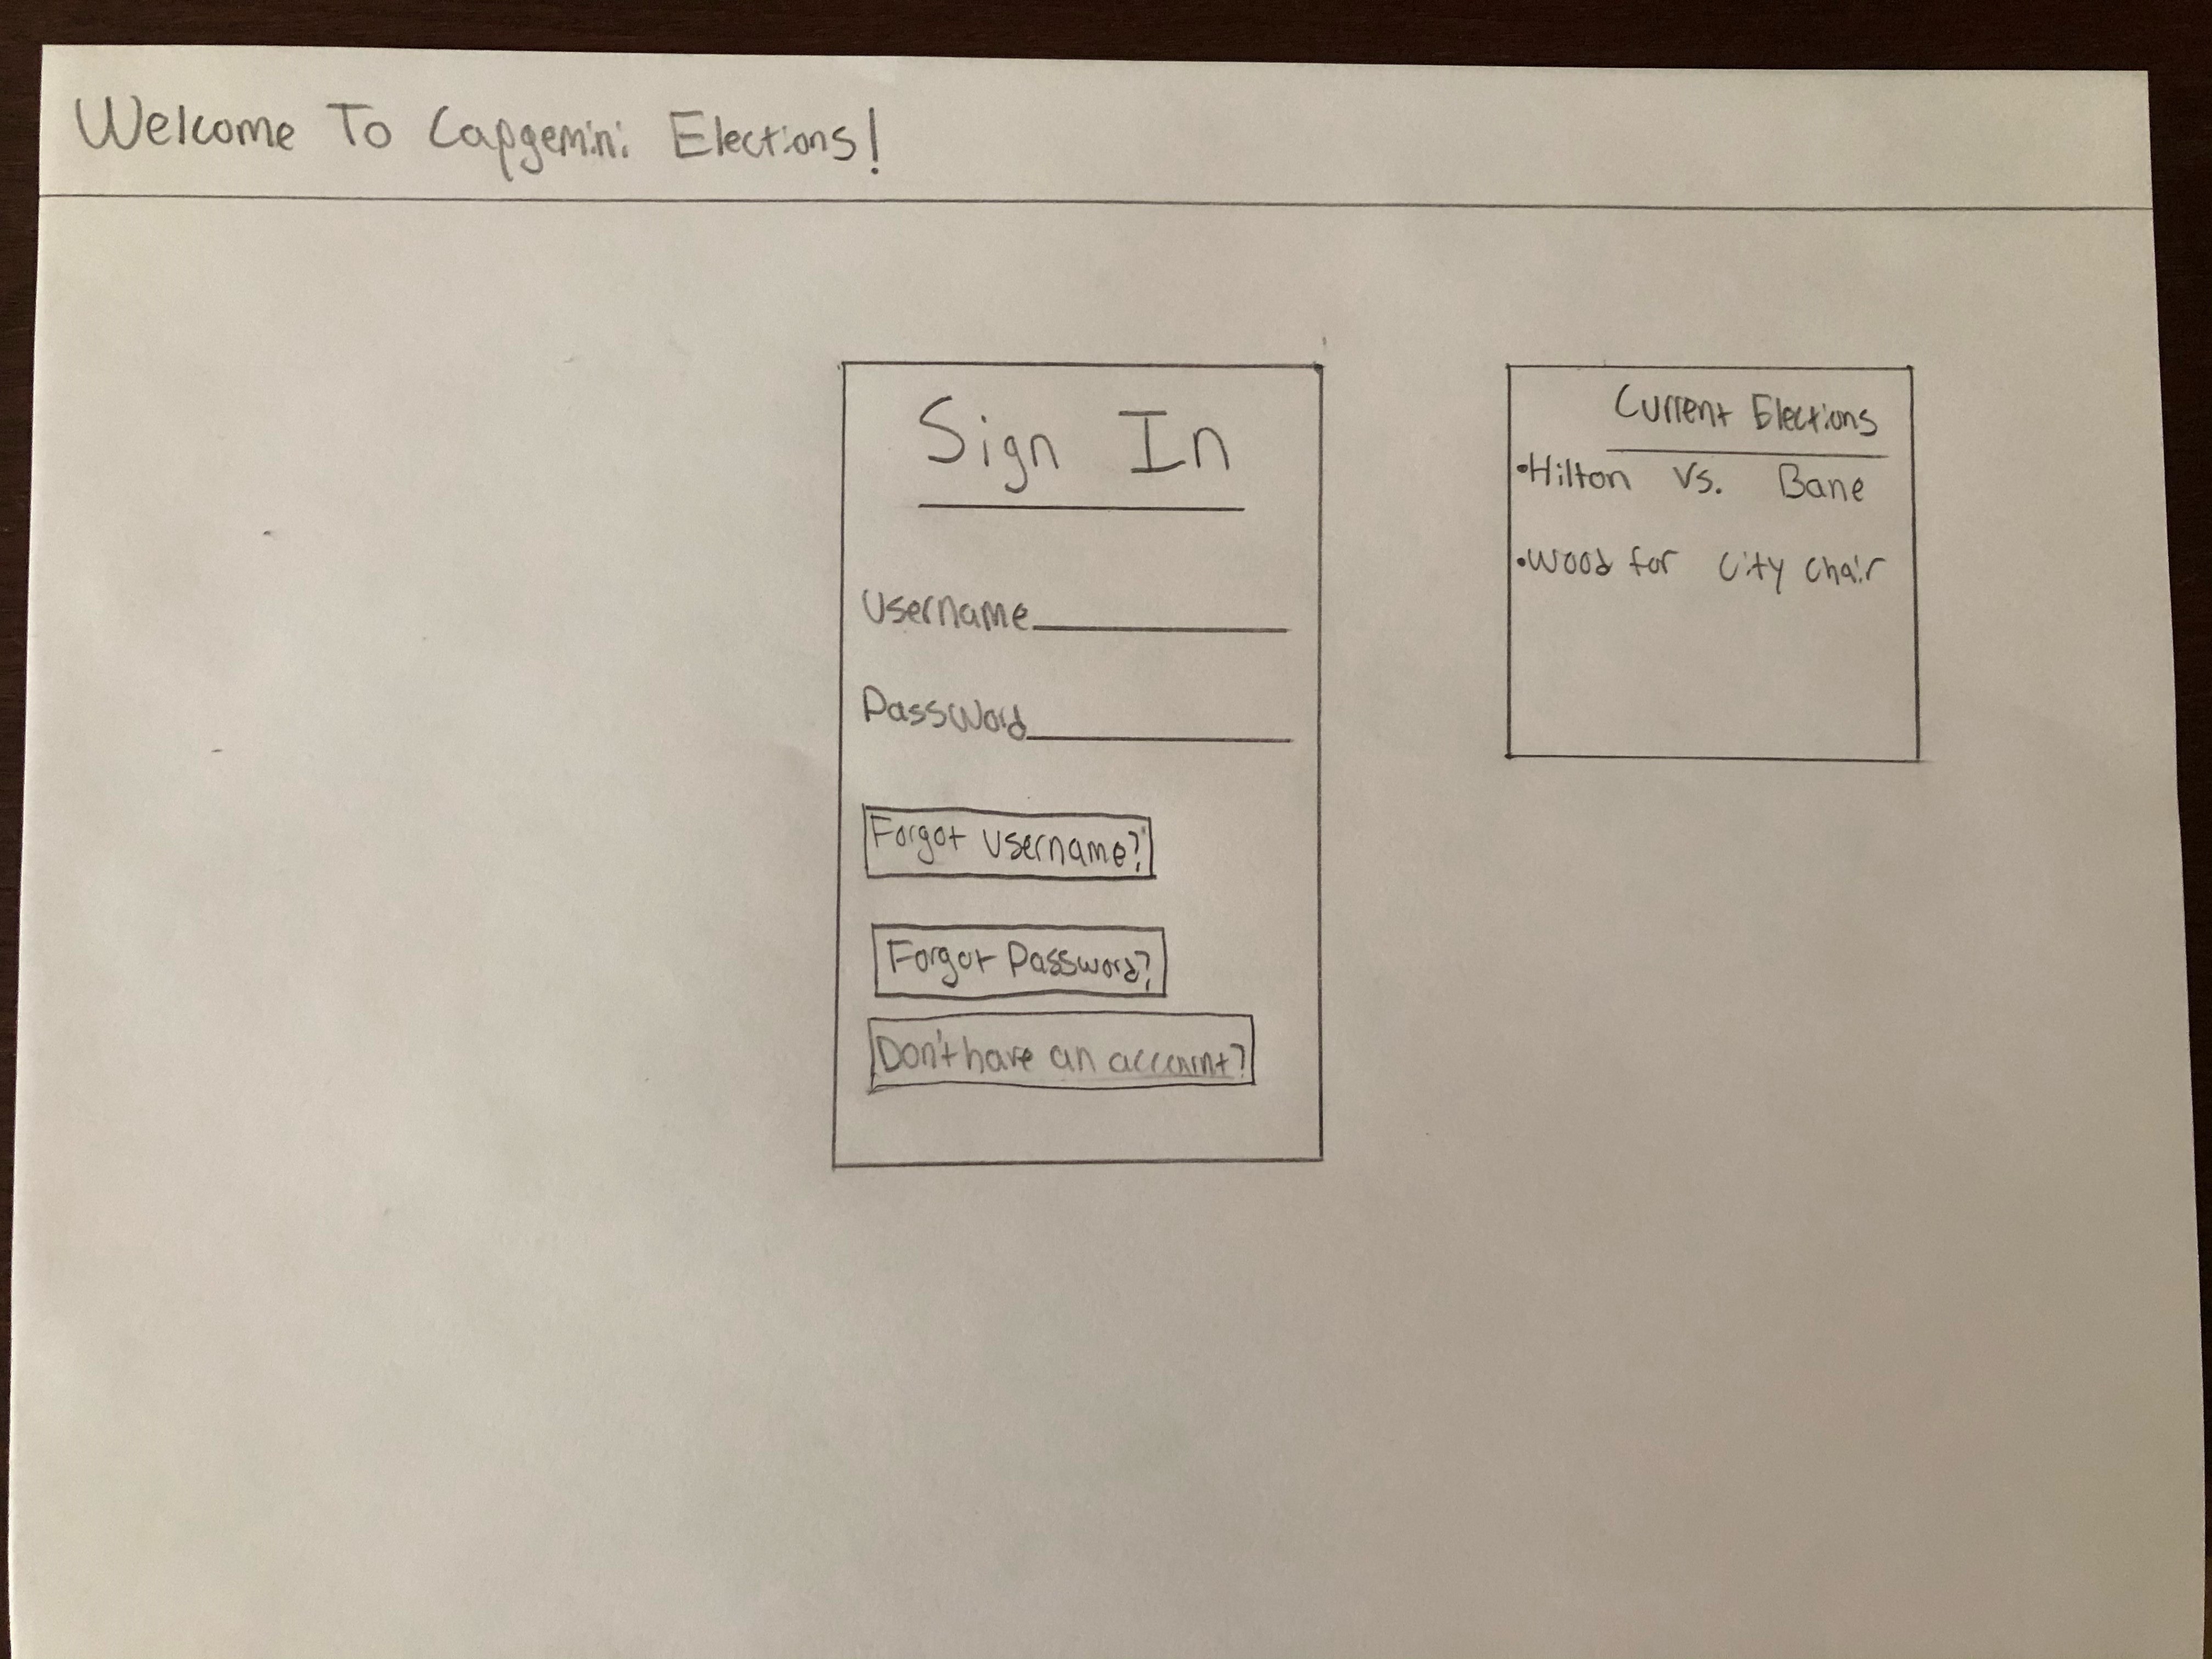 Welcome To Capgemini Elections!
Sign In
Username
Password
Forgot Username?
Forgot Password?
Don't have an account?
Current Elections
•Hilton Vs. Bane
•Wood for City Chair